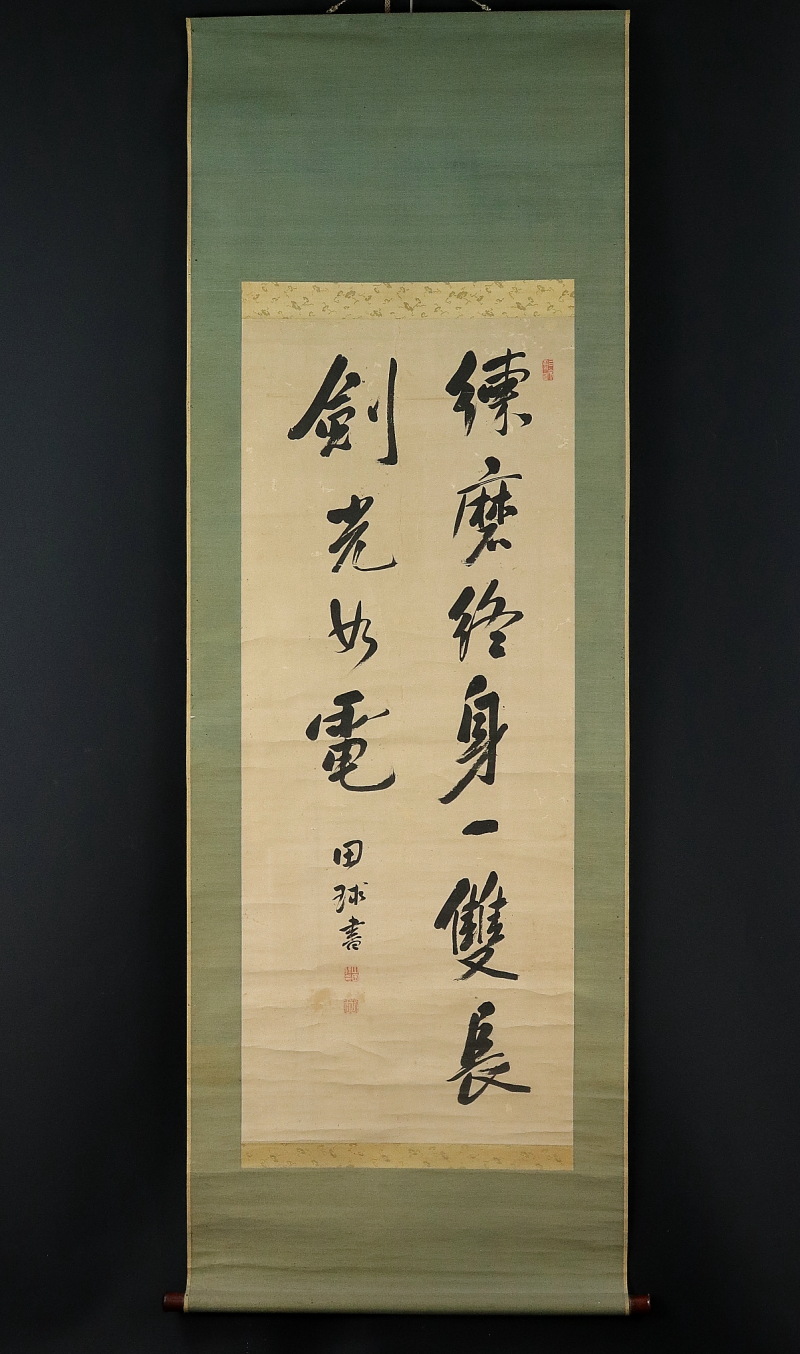 練磨終身一雙長
劍光如電
田球書